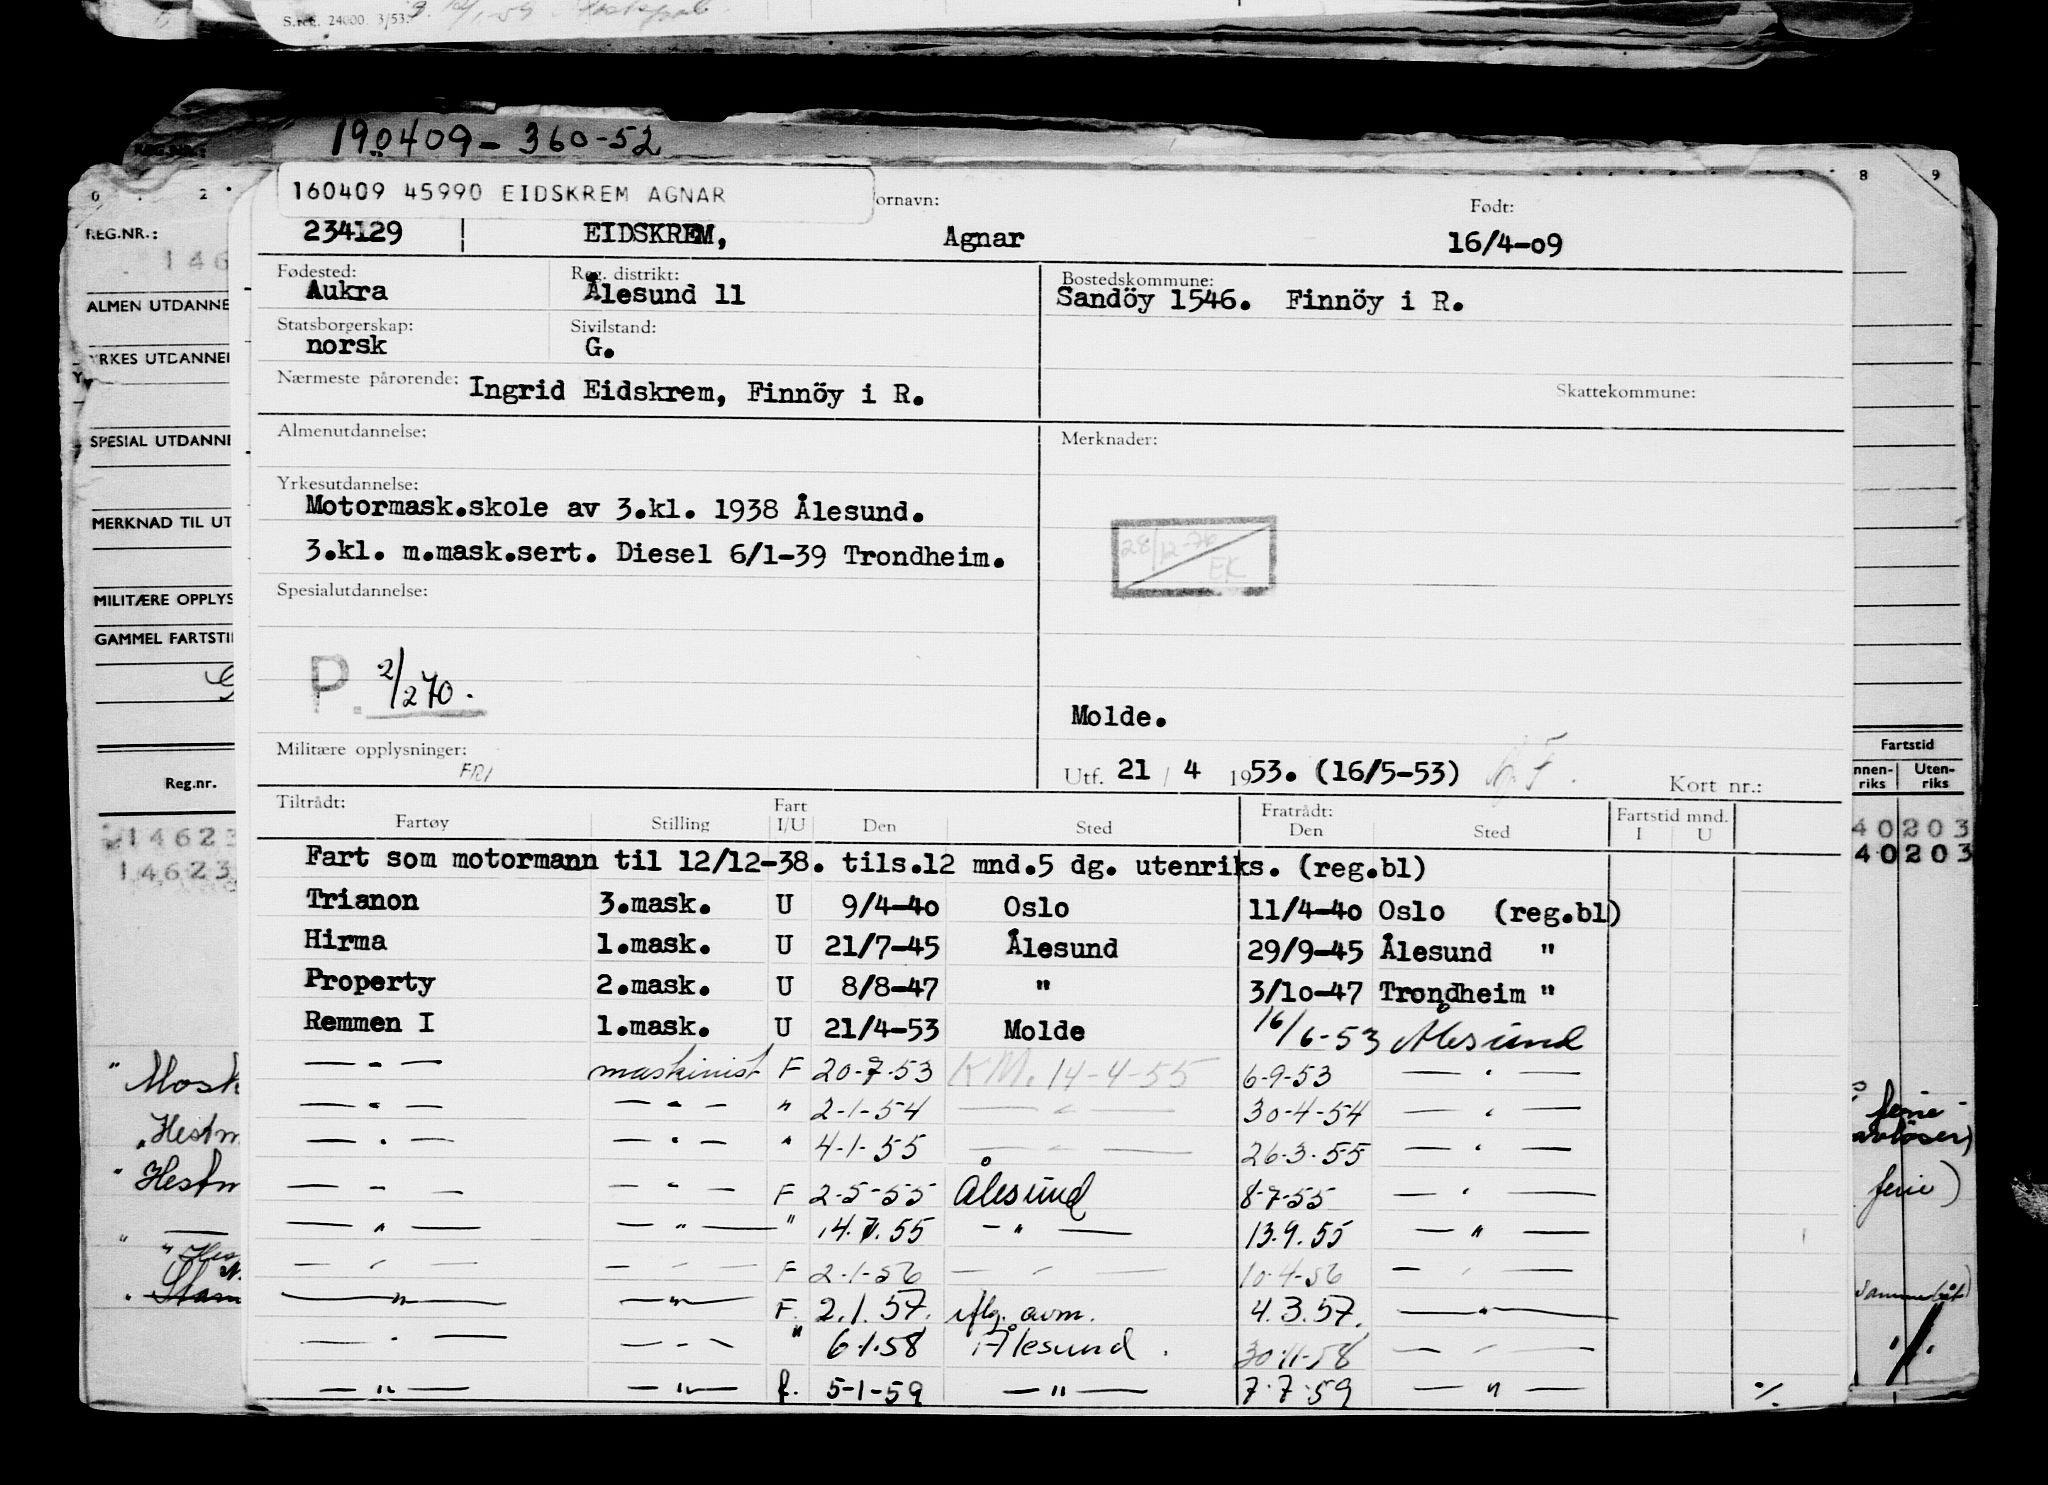 S.reg. 24000 3/53.
190409-360-52
0 2 8 9
160409 45990 EIDSKREM AGNAR
ornavn: Født:
234129 EIDSKREM, Agnar 16/4-09
REG.NR.:
146
Fødested: Reg. distrikt: Bostedskommune:
Aukra Ålesund 11 Sandöy 1546. Finnöy i R.
ALMEN UTDANNE
Statsborgerskap: Sivilstand:
norsk G.
YRKES UTDANNE
Nærmeste pårørende: Ingrid Eidskrem, Finnöy i R. Skattekommune:
Almenutdannelse: Merknader:
SPESIAL UTDANNE
Yrkesutdannelse:
Motormask.skole av 3.kl. 1938 Ålesund.
MERKNAD TIL UT
3.kl. m.mask.sert. Diesel 6/1-39 Trondheim.
28/12-76 EK
Spesialutdannelse:
MILITÆRE OPPLYS
GAMMEL FARTSTI
P. 2/270.
Molde.
Militære opplysninger: FRI
Utf. 21 / 4 1953. (16/5-53) Kort nr.:
Fartstid
Innen-riks Uten-riks
Reg.nr.
Tiltrådt: Fart Fratrådt: Fartstid mnd.
Fartøy Stilling I/U Den Sted Den Sted I U
14623 40203
14623 40203
Fart som motormann til 12/12-38. tils.12 mnd.5 dg. utenriks. (reg.bl)
Trianon 3.mask. U 9/4-40 Oslo 11/4-40 Oslo (reg.bl)
Hirma 1.mask. U 21/7-45 Ålesund 29/9-45 Ålesund "
Property 2.mask. U 8/8-47 " 3/10-47 Trondheim "
Remmen I 1.mask. U 21/4-53 Molde 16/6-53 Ålesund
— " — maskinist F 20-7-53 KM. 14-4-55 6-9-53 — " —
— " — — " — " 2-1-54 — " — 30-4-54 — " —
— " — — " — " 4-1-55 — " — 26-3-55 — " —
— " — — " — F 2-5-55 Ålesund 8-7-55 — " —
— " — — " — " 14.7.55 — " — 13.9.55 — " —
— " — — " — F 2-1-56 — " — 10-4-56 — " —
— " — — " — F. 2.1.57. iflg. avm. 4.3.57. — " —
— " — — " — " 6.1.58 Ålesund. 30-11-58 — " —
— " — — " — f. 5-1-59 — " — 7-7-59 — " — %
" Mosk
Hestm
" Hestm
ferie
avløser)
ferie)